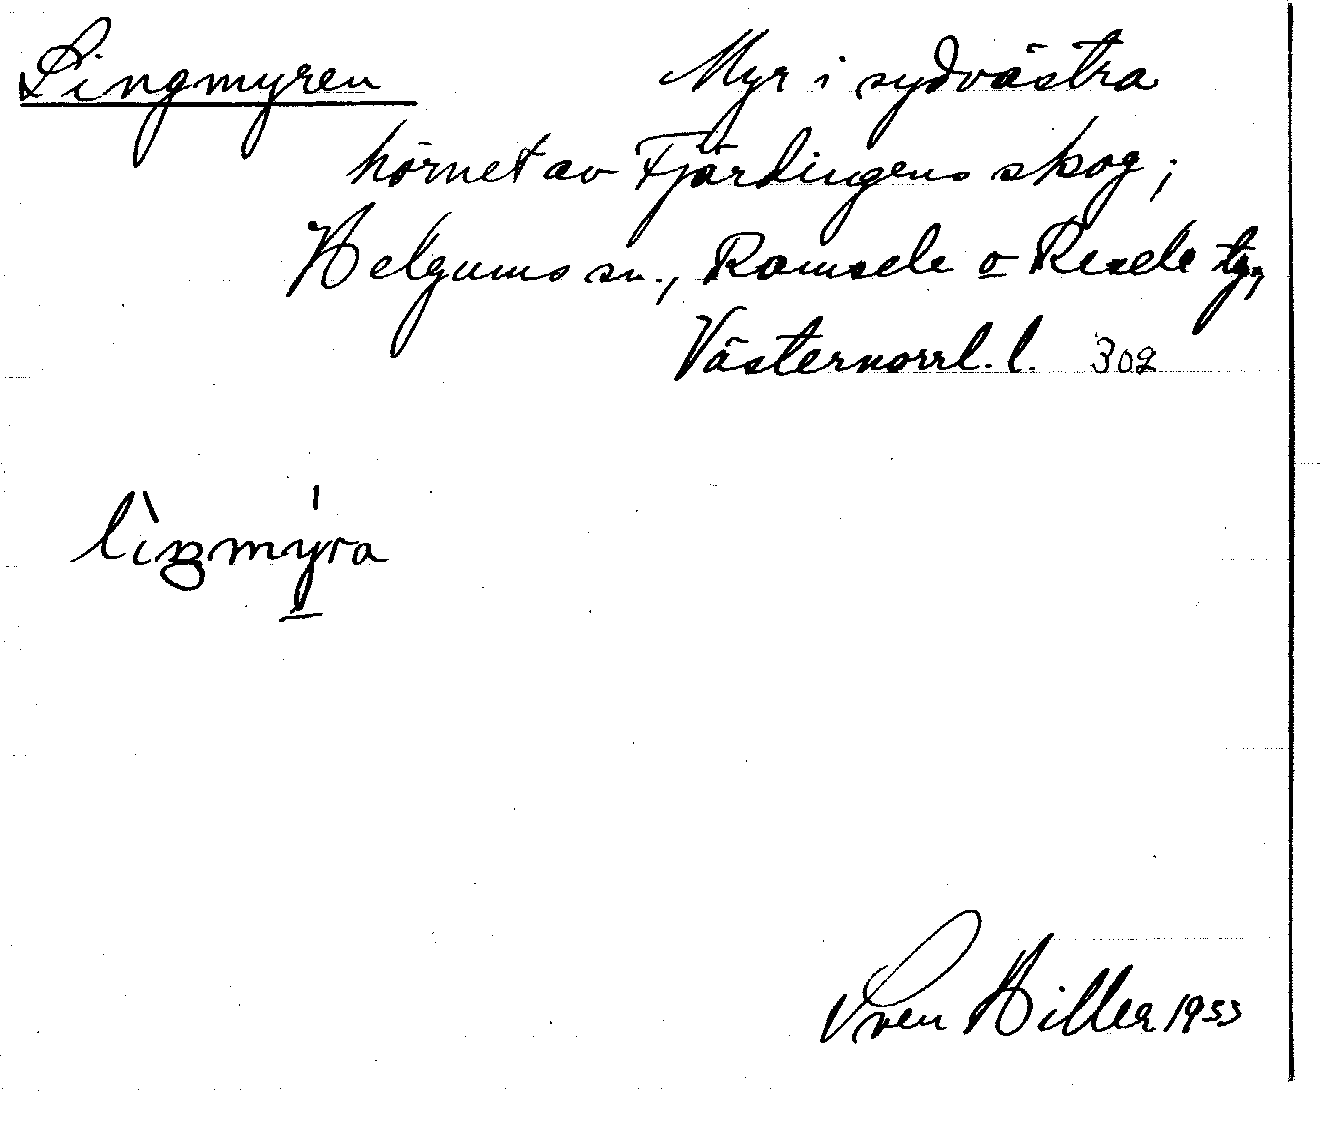 Lingmyren Myr i sydvästra
hörnet av Fjärdingens skog;
Helgums sn., Ramsele o Resele tg,
Västernorrl. l. 302
lìŋmýra
Sven Hiller 1933